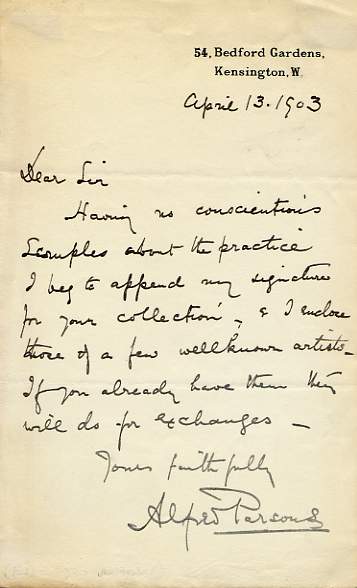 54, Bedford Gardens,
Kensington, W.
April 13. 1903
Dear Sir
Having no conscientious
scruples about the practice
I beg to append my signature
for your collection, & I enclose
those of a few wellknown artists_
If you already have them they
will do for exchanges _
Yours faithfully
Alfred Parsons